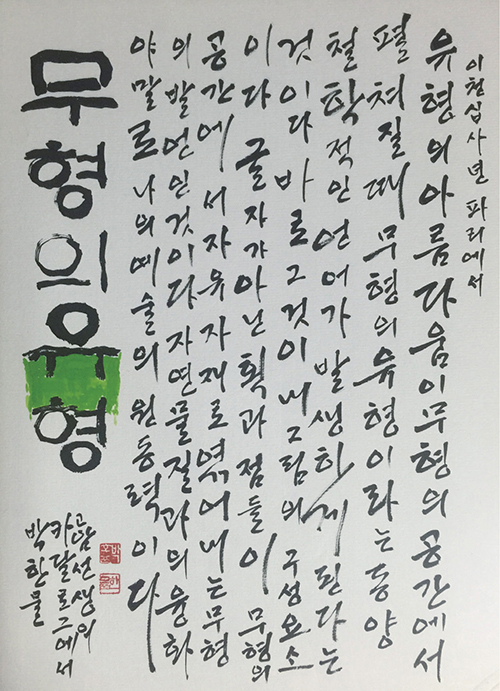 이천십사년 파리에서
유형의 아름다움이 무형의 공간에서
펼쳐질때 무형의 유형이라는 동양
철학적인 언어가 발생하게 된다는
것이다 바로 그것이 내 그림의 구성요소
이다 글자가 아닌 획과 점들이 무형의
공간에서 자유자재로 엮어내는 무형
의 발언인 것이다 자연물질과의 융화
야말로 나의 예술의 원동력이다
무형의 유형
고암선생의
카달로그에서
박한물